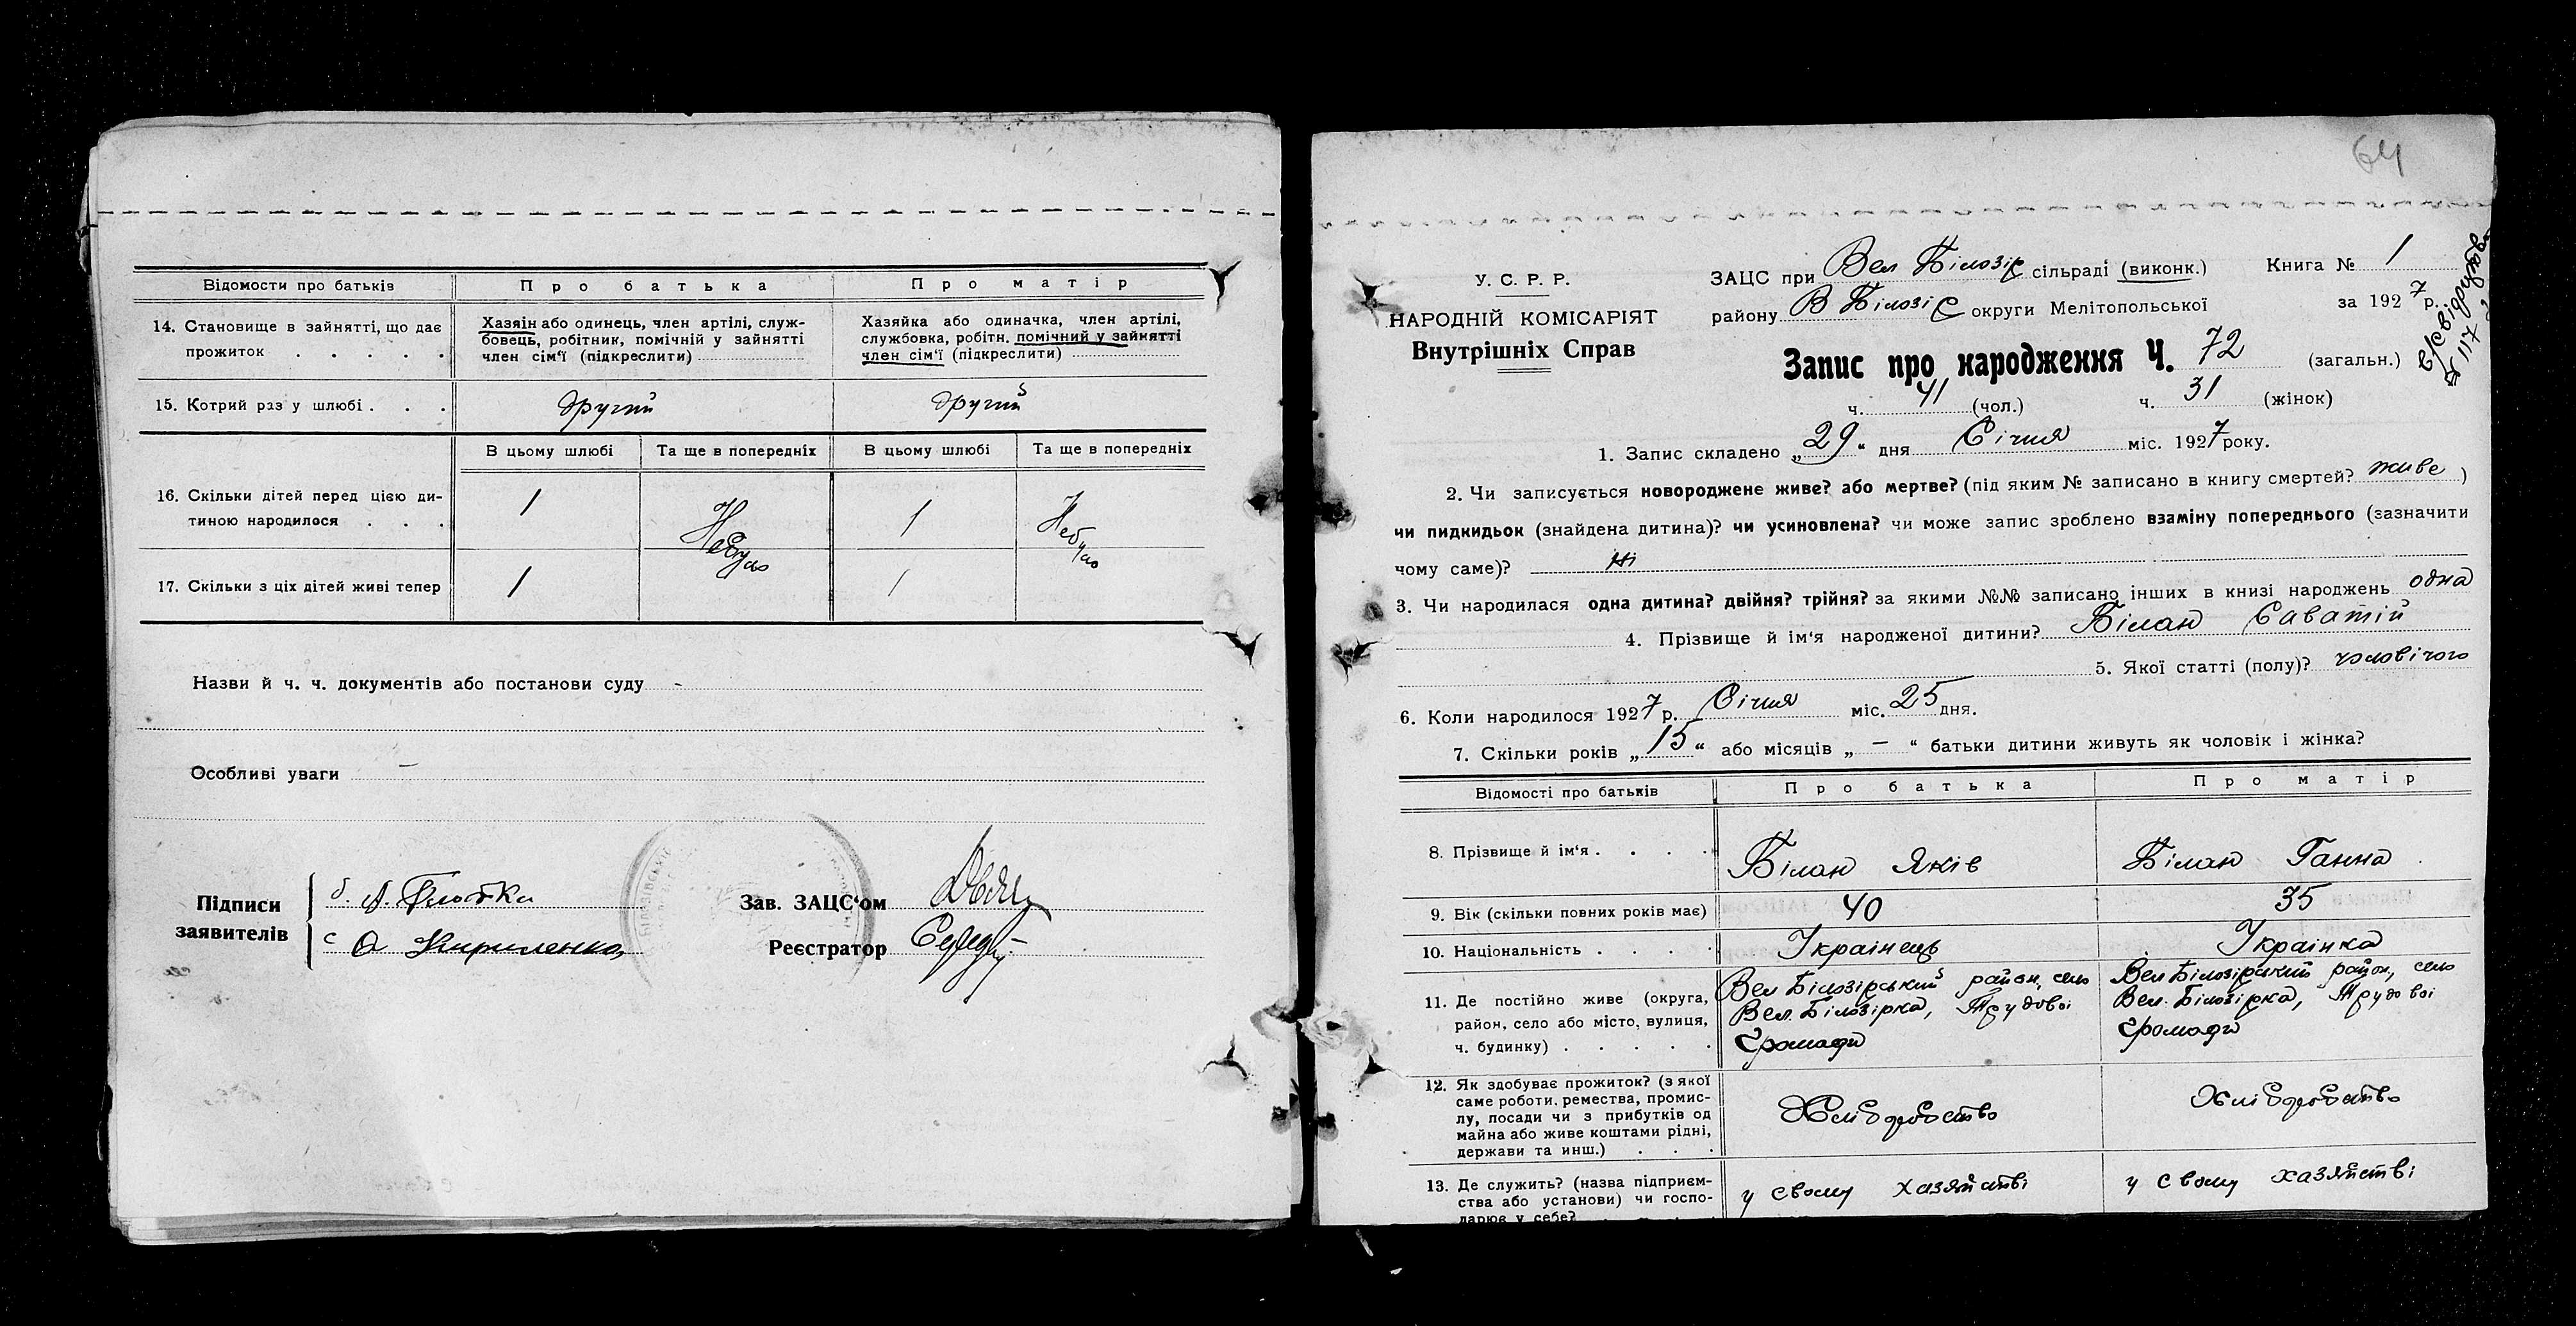 Відомости про батьків
Про батька
Про матір
14. Становище в зайнятті, що дає прожиток . . . . .
Хазяін або одинець, член артілі, служ-
бовець, робітник, помічній у зайнятті
член сім'ї (підкреслити)
Хазяйка або одиначка, член артілі,
службовка, робітн. помічний у зайнятті
член сім'ї (підкреслити)
15. Котрий раз у шлюбі . . .
другий
другий
В цьому шлюбі
Та ще в попередніх
В цьому шлюбі
Та ще в попередніх
16. Скільки дітей перед цією ди-
тиною народилося . . .
1
Небуло
1
Небуло
17. Скільки з ціх дітей живі тепер
1
1
Назви й ч. ч. документів або постанови суду -
Особливі уваги —
Підписи
заявителів
с О Кириленко
Зав. ЗАЦС'ом
Реєстратор
64
У. С. Р. Р.
НАРОДНІЙ КОМІСАРІЯТ
Внутрішніх Справ
ЗАЦС при Вел Білозір сільраді (виконк.)
району В Білозір округи Мелітопольської
Книга № 1
за 1927 р.
№ 117
Запис про народження Ч. 72 (загальн.)
ч. 41 (чол.) ч. 31 (жінок)
1. Запис складено „29“ дня Січня міс. 1927 року.
2. Чи записується новороджене живе? або мертве? (під яким № записано в книгу смертей? живе)
чи пидкидьок (знайдена дитина)? чи усиновлена? чи може запис зроблено взаміну попереднього (зазначити
чому саме)? ні
3. Чи народилася одна дитина? двійня? трійня? за якими №№ записано інших в книзі народжень одна
4. Прізвище й ім'я народженої дитини? Білан Саватій
5. Якої статті (полу)? чоловічого
6. Коли народилося 1927 р. Січня міс. 25 дня.
7. Скільки років „15“ або місяців „—“ батьки дитини живуть як чоловік і жінка?
Відомості про батьків
Про батька
Про матір
8. Прізвище й ім'я . . . .
Білан Яків
Білан Ганна
9. Вік (скільки повних років має)
40
35
10. Національність . . . .
Українець
Українка
11. Де постійно живе (округа,
район, село або місто, вулиця,
ч. будинку) . . . . .
Вел Білозірський район, село
Вел. Білозірка, Трудовоі
Громади
Вел Білозірський район, село
Вел. Білозірка, Трудовоі
Громади
12. Як здобуває прожиток? (з якої
саме роботи, ремества, промис-
лу, посади чи з прибутків од
майна або живе коштами рідні,
держави та инш.) . . .
Хліборобство
Хліборобство
13. Де служить? (назва підприєм-
ства або установи) чи госпо-
дарює у себе?
у свому хазяйстві
у свому хазяйстві